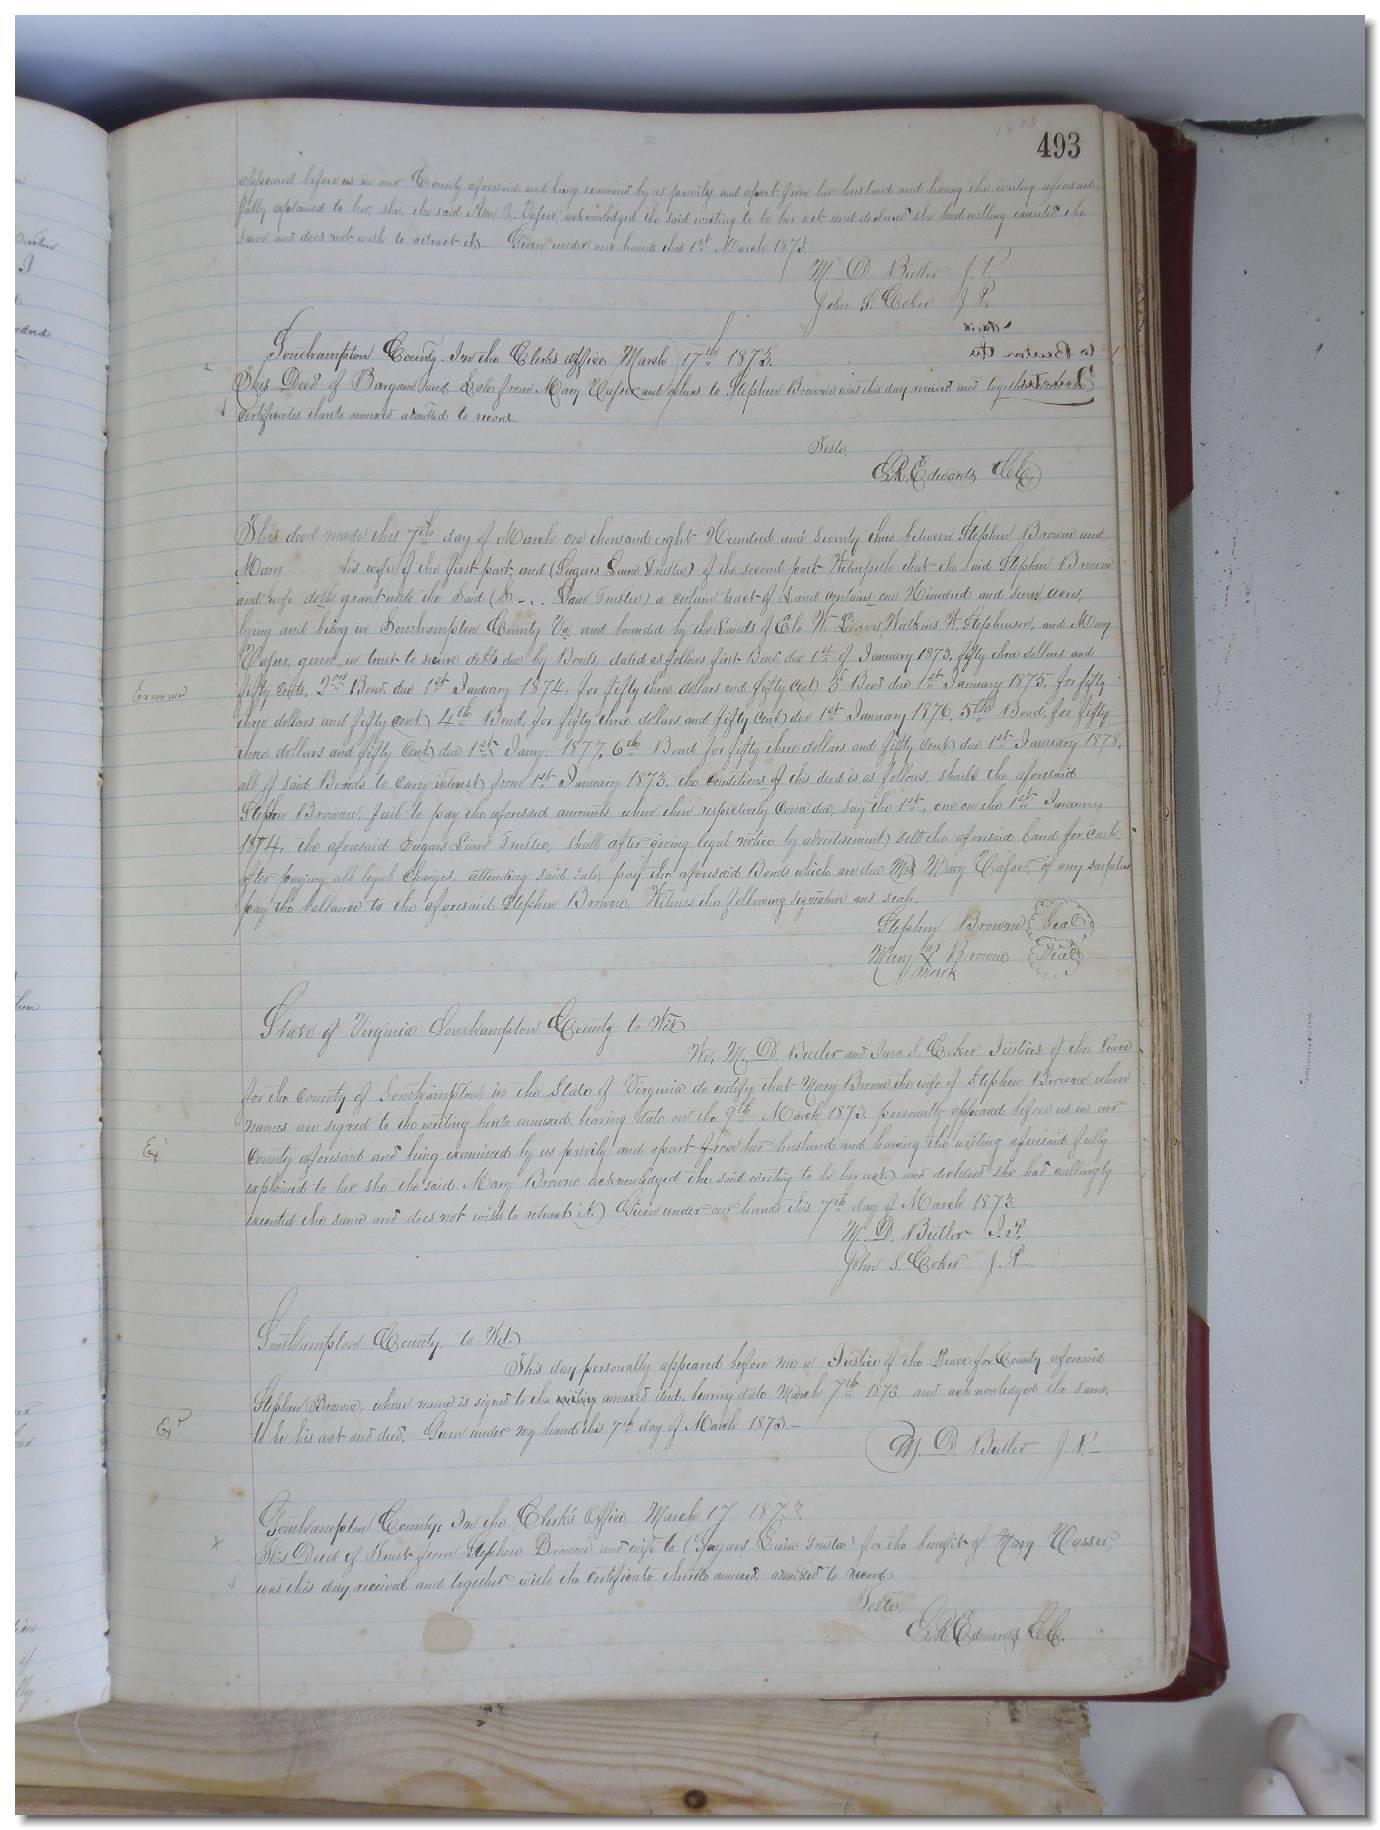 493
appeared before us in our County aforesaid and being examined by us privily and apart from her husband and having the writing aforesaid
fully explained to her, she, the said Ann Vasser, acknowledged the said writing to be her act and declared she had willing executed the
same and does not wish to retract it. Given under our hands this 1st March 1873.
M D. Butler J. P.
John S. Coker J P.
Southampton County. In the Clerks office March 17th 1873.
This Deed of Bargain and Sale from Mary Vasser and others to Stephen Browne was this day received and together with the
certificates thereto annexed admitted to record.
Teste,
E.R. Edwards C.C.
This deed made this 7th day of March one thousand eight Hundred and Seventy three between Stephen Browne and
Mary his wife of the first part, and ( Trustee) of the second part Witnesseth that the said Stephen Browne
and wife doth grant unto the Said ( Trustee) a certain tract of Land contains one Hundred and Seven acres,
lying and being in Southampton County Va and bounded by the Lands of W Davis, Watkins W Stephenson, and Mary
Vasser, given in trust to secure debts due by Bonds, dated as follows first Bond due 1st of January 1873, fifty three dollars and
Examined
fifty cents, 2nd Bond due 1st January 1874, for fifty three dollars and fifty cent, 3 Bond due 1st January 1875, for fifty
three dollars and fifty cent, 4th Bond, for fifty three dollars and fifty cent, due 1st January 1876, 5th Bond, for fifty
three dollars and fifty cent, due 1st Jany. 1877, 6th Bond for fifty three dollars and fifty cent, due 1st January 1878,
all of said Bonds to cary interest from 1st January 1873. the conditions of this deed is as follows, should the aforesaid
Stephen Browne, fail to pay the aforesaid amounts, when then respectively come due, Say the 1st, one on the 1st January
1874, the aforesaid Trustee, shall after giving legal notice by advertisement sell the aforesaid Land for cash,
after paying all legal charges, attending said sale, pay the aforesaid Bonds which are due Mrs Mary Vasser, if any surplus
pay the ballance to the aforesaid Stephen Browne. Witness the following signature and seals.
Stephen Browne Seal
Mary her X mark Browne Seal
State of Virginia Southampton County to Wit,
We, M. D. Butler and Jno S. Coker Justices of the Peace
for the County of Southampton in the State of Virginia do certify that Mary Browne the wife of Stephen Browne whose
names are signed to the writing hereto annexed bearing date on the 9th March 1873. personally appeared before us in our
Ex'
County aforesaid and being examined by us privily and apart from her husband and having the writing aforesaid fully
explained to her she, the said Mary Browne acknowledged the said writing to be her act, and declared she had willingly
executed the same and does not wish to retract it, Given under our hands this 7th day of March 1873
M. D. Butler J. P.
John S. Coker J. P.
Southampton County, to Wit,
This day personally appeared before me, a Justice of the Peace for County aforesaid
Stephen Browne, whose name is signed to the writing annexed deed. bearing date March 7th 1873. and acknowledged the same,
to be his act and deed. Given under my hand this 7th day of March 1873 —
M. D. Butler J. P.
Southampton County: In the Clerk's Office March 17 1873.
This Deed of Trust from Stephen Browne and wife to ( Trustee) for the benefit of Mary Vasser,
was this day received and together with the certificate thereto annexed, admitted to record
Teste,
E.R. Edwards C.C.